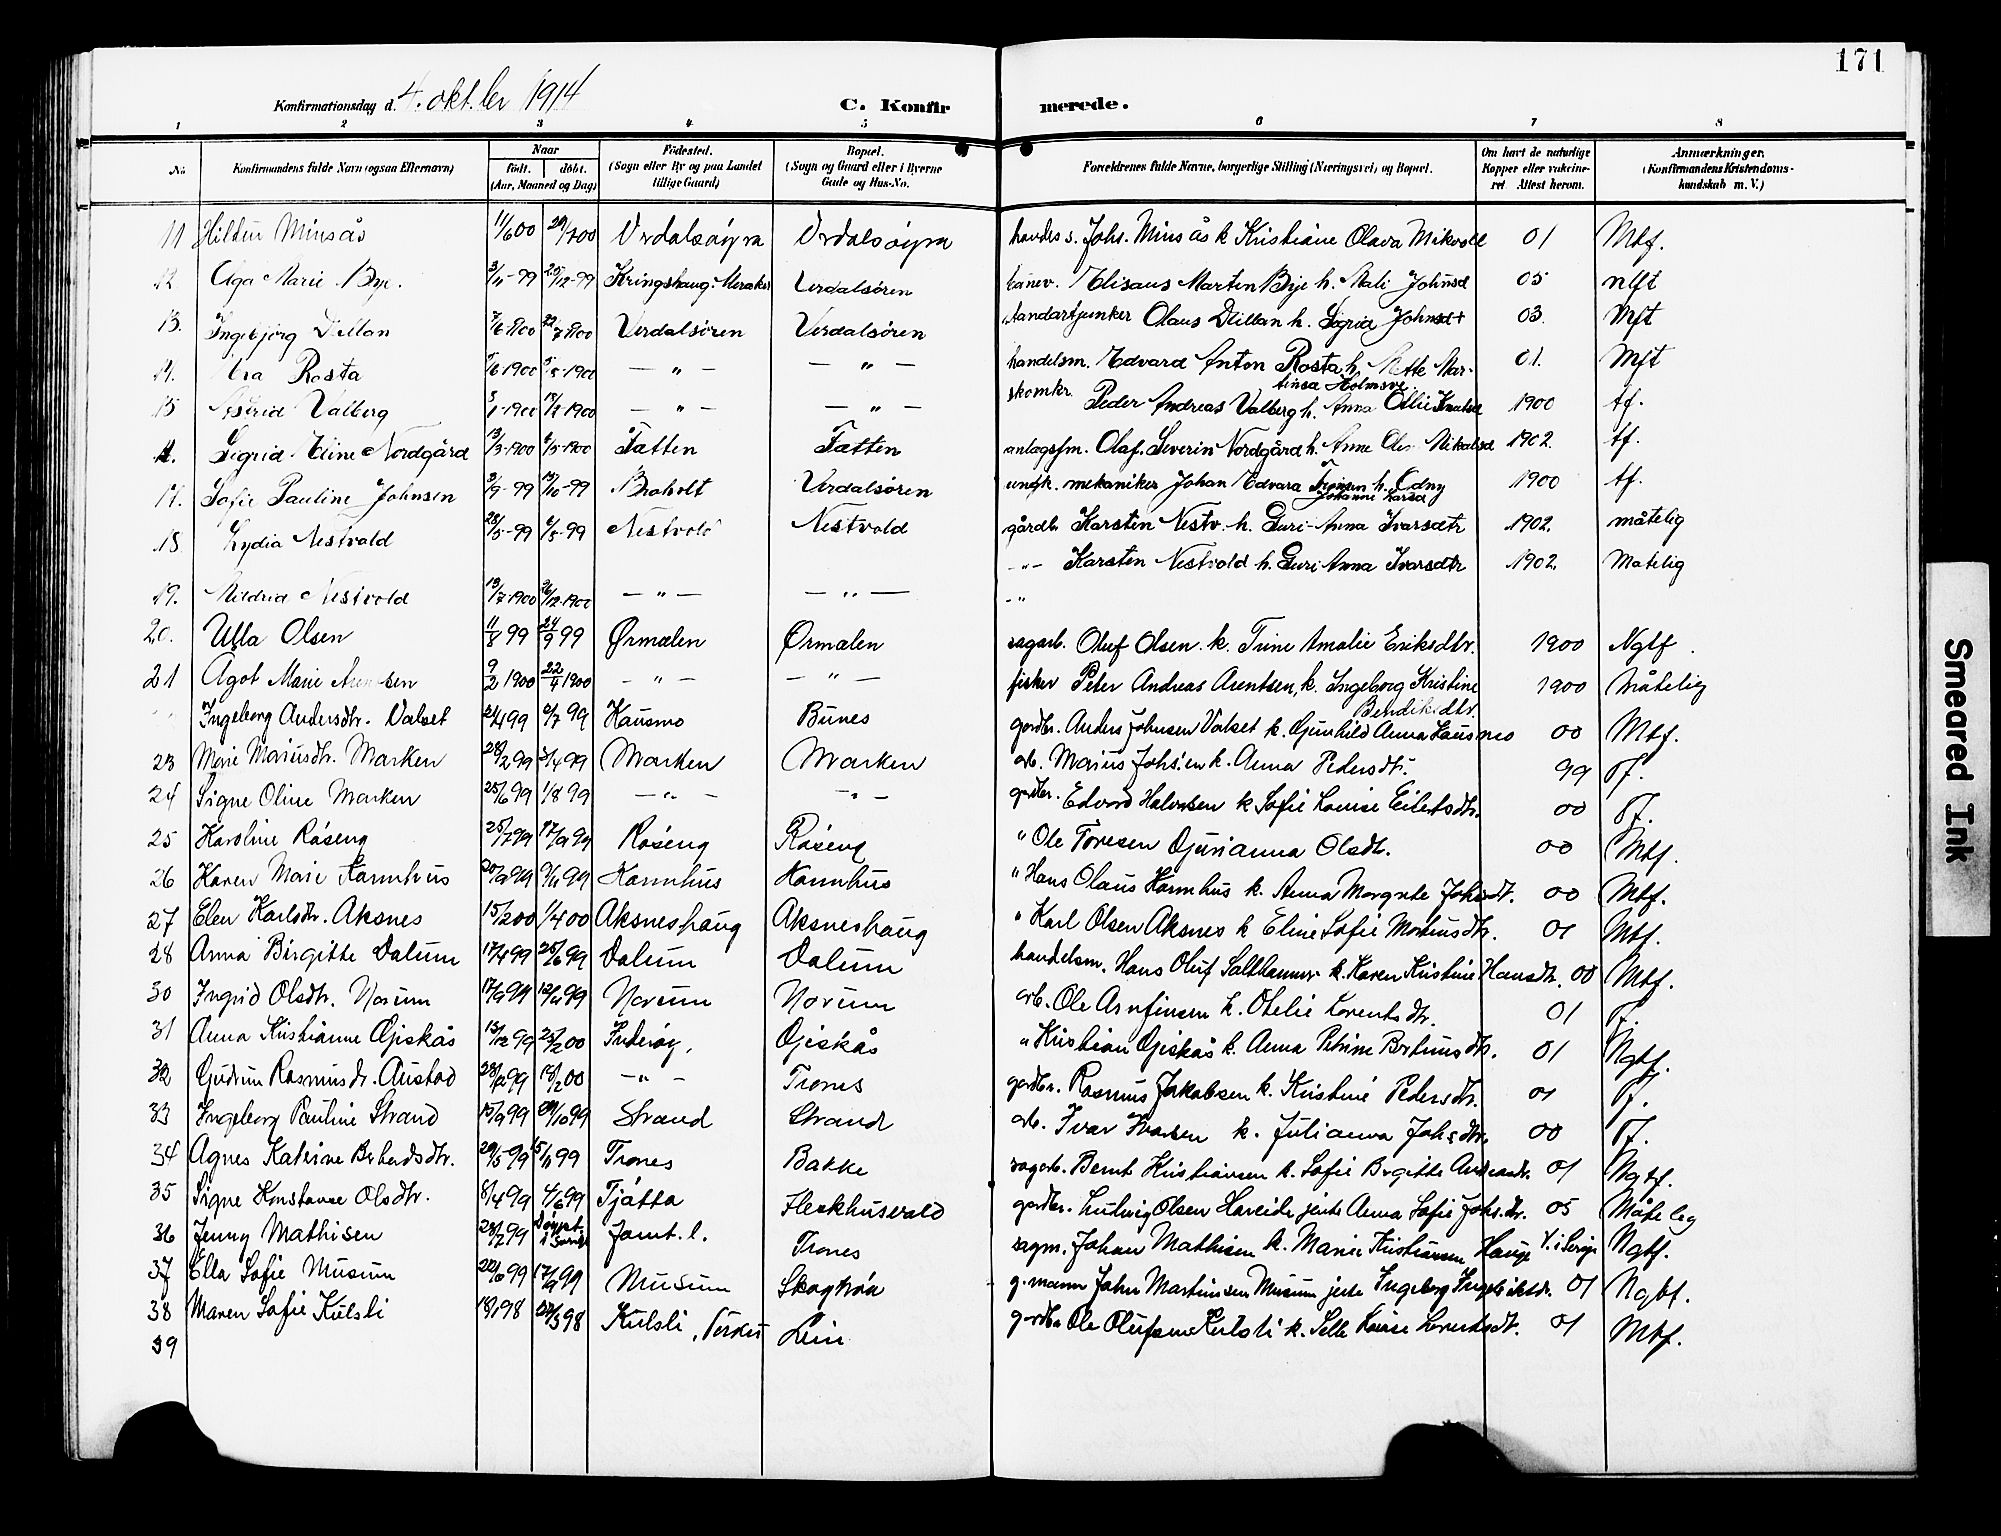 171
Konfirmationsdag d. 4. okt.ber 1914 C. Konfir merede.
1 2 3 4 5 6 7 8
No. Konfirmandens fulde Navn (ogsaa Efternavn) Naar født. døbt. (Aar, Maaned og Dag) Fødested. (Sogn eller By og paa Landet tillige Gaard) Bopæl. (Sogn og Gaard eller i Byerne Gade og Hus-No. Forældrenes fulde Navne, borgerlige Stilling (Næringsvei) og Bopæl. Om havt de naturlige Kopper eller vaccineret Attest herom. Anmærkninger. (Konfirmandens Kristendomskundskab m. V.)
11 Hildur Minsås 11/6 00 Verdalsøyra Verdalsøyra Johs. Minsås k Kristiane Olava Mikvold 01 Mtf.
12 Aga Marie Bye. 3/11-99 25/12-99 Kringshaug Meraker Verdalsøren Elisæus Marten Bye h. Mali Johnsd 05 Mft
13. Ingebjørg Dillan 7/6 1900 22/7 1900 Verdalsøren Verdalsøren Olaus Dillan h. Sigrid Johnsdt 03. Mft
14. Rosta 1900 1900 — " — — " — handelsm. Edvard Anton Rosta h. Mette Mar- 01. Mft
tinsd Holmsve.
15 Astrid Valberg 1900 1900 — " — — " — skomkr. Peder Andreas Valberg h. Anna Ollie Knutsd 1900 tf.
Sigrid Eline Nordgård 13/3-1900 6/5-1900 Fætten Fætten anlagsfm. Olaf Severin Nordgård h. Anne Mikalsd 1902. tf.
17. Sofie Pauline Johnsen 3/9-99 15/10-99 Braholt Verdalsøren mekaniker Johan Edvard h. Odny 1900 tf.
Johanne Larsd
18 Lydia Nestvold 28/5-99 99 Nestvold Nestvold gårdb. Karsten Nestv. h. Guri-Anna Ivarsdtr 1902. måtelig
-"- Karsten Nestvold h. Guri Anna Ivarsdtr 1902. Måtelig
19. Mildrid Nestvold 13/7-1900 26/12-1900 — " — — " — -"
20. Ulla Olsen 11/8 99 24/9 99 Ørmælen Ørmelen sagarb. Oluf Olsen k. Trine Amalie Eriksdtr. 1900 Ngtf.
21 Agot Marie Arentsen 9/2 1900 22/4 1900 — " — — " — fisker Peter Andreas Arentsen, k. Ingeborg Kristine 1900 Måtelig
Bendiksdtr.
Ingeborg Andersdtr. Valset 99 99 Hausmo Bunes gardbr. Anders Johnsen Valset k. Gunhild Anna Hausmo 00 Mtf.
23 Marie Mariusdtr. Marken 28/2 99 3/4 99 Marken Marken arb. Marius Johsen k. Anna Pedersdtr. 99 Tf.
24 Signe Oline Marken 25/6 99 1/8 99 — " — — " — gardbr. Edvard Halvorsen k Sofie Louise Eilertsdtr. 00 Tf.
25 Karoline Røseng 25/7 99 17/9 99 Røseng Røseng " Ole Toresen Gurianna Olsdt. 00 Mtf.
26 Karen Marie Karmhus 99 99 Karmhus Karmhus " Hans Olaus Karmhus k. Anna Margrete Johsdt. 00 Mtf.
27 Elen Karlsdtr. Aksnes 15/2 00 1/4 00 Aksneshaug Aksneshaug " Karl Olsen Aksnes k Eline Sofie Mortinsdtr. 01 Mtf.
28 Anna Birgitte Dalum 17/4 99 25/6 99 Dalum Dalum handelsm. Hans Oluf Salthammer k. Karen Kristine Hansdtr. 00 Mtf.
30 Ingrid Olsdtr. Norum 99 99 Norum Norum arb. Ole Arnfinsen k. Otelie Lorentsdtr. 01 Tf.
31 Anna Kristianne Gjiskås 13/12 99 25/2 00 Inderøy, Gjiskås " Kristian Gjiskås k. Anna Petrine Bertinusdtr. 01 Ngtf.
32 Gudrun Rasmusdtr. Austad 99 18/2 00 — " — Trones gardbr. Rasmus Jakobsen k. Kristine Pedersdtr. 01 Tf.
33 Ingeborg Pauline Strand 15/9 99 29/10 99 Strand Strand arb. Ivar Ivarsen k. Julianna Johsdtr. 00 Tf.
34 Agnes Katrine Berntsdtr. 29/5 99 99 Trones Bakke sagarb. Bernt Kristiansen k. Sofie Birgitte Andreasdtr. 01 Ngtf.
35 Signe Konstanse Olsdtr. 8/4 99 4/6 99 Tjøtta Fleskhusvald gardbr. Ludvig Olsen Hareide jente Anna Sofie Johs.dtr. 05 Måtelig
36 Jenny Mathisen 23/7 99 Døypt i Jamt.l. Trones sagm. Johan Mathisen k. Marie Kristiansen Hauge Ngtf.
37 Ella Sofie Musum 99 17/9 99 Musum Skogtrøa g.mann John Martinsen Musum jente Ingeborg Ingebriktsdtr. 01 Ngtf.
38 Maren Sofie Kulsli 98 98 Kulsli, Lein gardbr. Ole Kulsli k. Louise Lorentsdt. 01 Mtf.
39
Smeared Ink